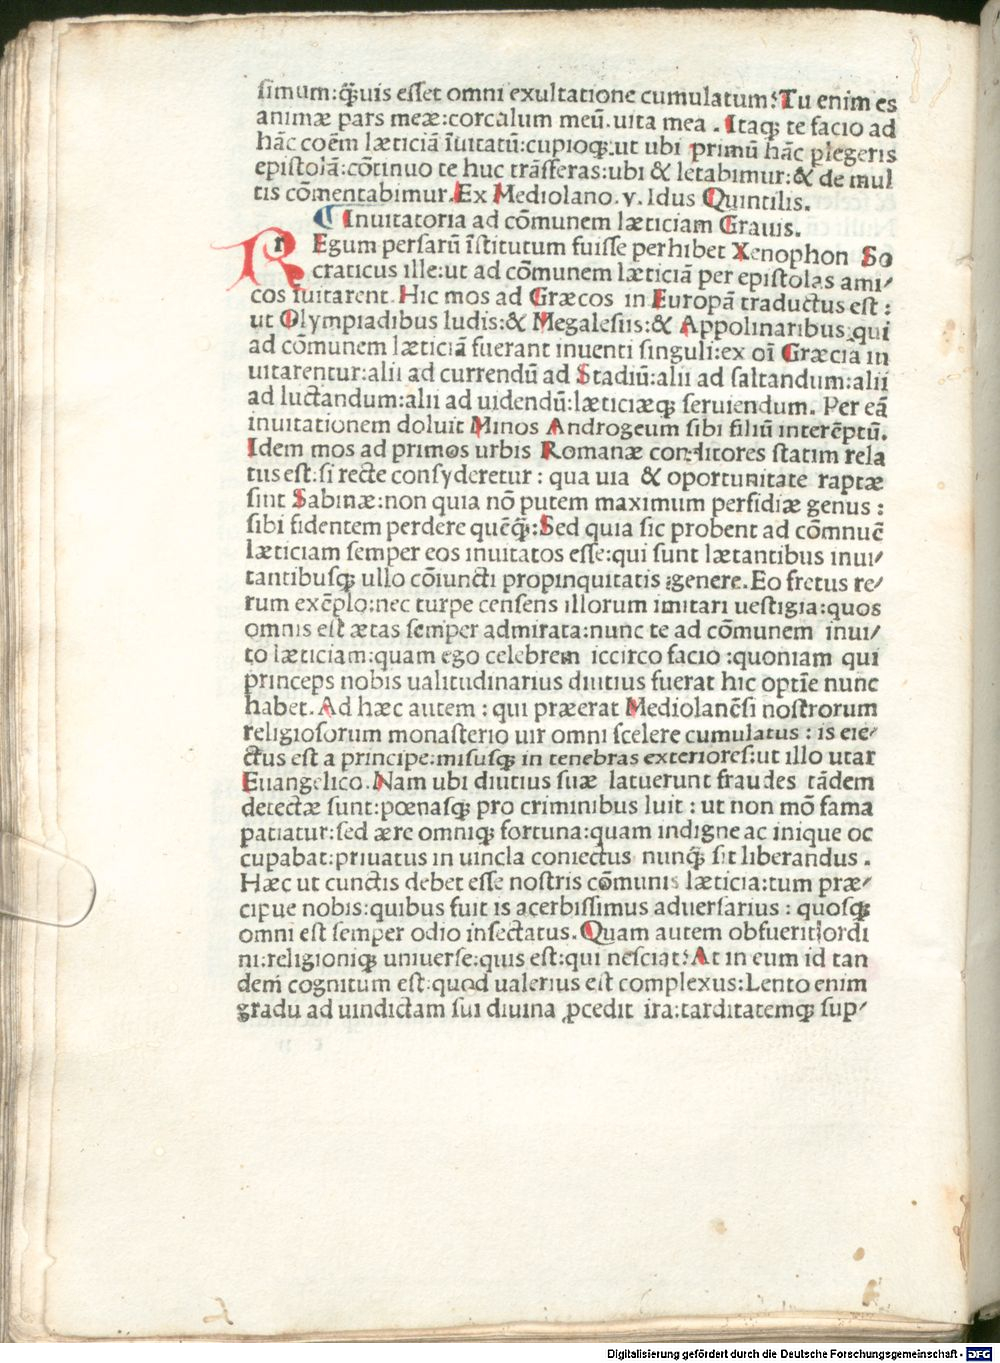 simum:q̃uis esset omni exultatione cumulatum? Tu enim es
animæ pars meæ:corculum meū.uita mea. Itaq; te facio ad
hãc coẽm læticiã ĩuitatũ:cupioq;.ut ubi primũ hãc plegeris
epistolã:cõtinuo te huc trãsferas:ubi & letabimur:& de mul
tis cõmentabimur. Ex Mediolano.v. Idus Quintilis.
¶ Inuitatoria ad cõmunem læticiam Grauis.
R r Egum persarũ ĩstitutum fuisse perhibet Xenophon So
craticus ille:ut ad cõmunem læticiã per epistolas ami/
cos ĩuitarent. Hic mos ad Græcos in Europã traductus est:
ut Olympiadibus ludis:& Megalesiis:& Appolinaribus:qui
ad cõmunem læticiã fuerant inuenti singuli:ex oĩ Græcia in
uitarentur:alii ad currendũ ad Stadiũ:alii ad saltandum:alii
ad luctandum:alii ad uidendũ:læticiæq; seruiendum. Per eã
inuitationem doluit Minos Androgeum sibi filiũ interẽptũ.
Idem mos ad primos urbis Romanæ conditores statim rela
tus est:si recte consyderetur: qua uia & oportunitate raptæ
sint Sabinæ:non quia nõ putem maximum perfidiæ genus:
sibi fidentem perdere quẽq̃:Sed quia sic probent ad cõmnuẽ
læticiam semper eos inuitatos esse:qui sunt lætantibus inui/
tantibusq; ullo cõiuncti propinquitatis genere. Eo fretus re/
rum exẽplo:nec turpe censens illorum imitari uestigia:quos
omnis est ætas semper admirata:nunc te ad cõmunem inui/
to læticiam:quam ego celebrem iccirco facio:quoniam qui
princeps nobis ualitudinarius diutius fuerat hic optĩe nunc
habet. Ad hæc autem: qui præerat Mediolanẽsi nostrorum
religiosorum monasterio uir omni scelere cumulatus: is eie/
ctus est a principe:misusq; in tenebras exteriores:ut illo utar
Euangelico. Nam ubi diutius suæ latuerunt fraudes tãdem
detectæ sunt:pœnasq; pro criminibus luit: ut non mõ fama
patiatur:sed ære omniq; fortuna:quam indigne ac inique oc
cupabat:priuatus in uincla coniectus nunq̃ sit liberandus.
Hæc ut cunctis debet esse nostris cõmunis læticia:tum præ/
cipue nobis:quibus fuit is acerbissimus aduersarius: quosq;
omni est semper odio insectatus. Quam autem obfuerit ordi
ni:religioniq; uniuerse:quis est:qui nesciat? At in eum id tan
dem cognitum est:quod ualerius est complexus:Lento enim
gradu ad uindictam sui diuina ꝓcedit ira:tarditatemq; sup/
Digitalisierung gefördert durch die Deutsche Forschungsgemeinschaft - DFG